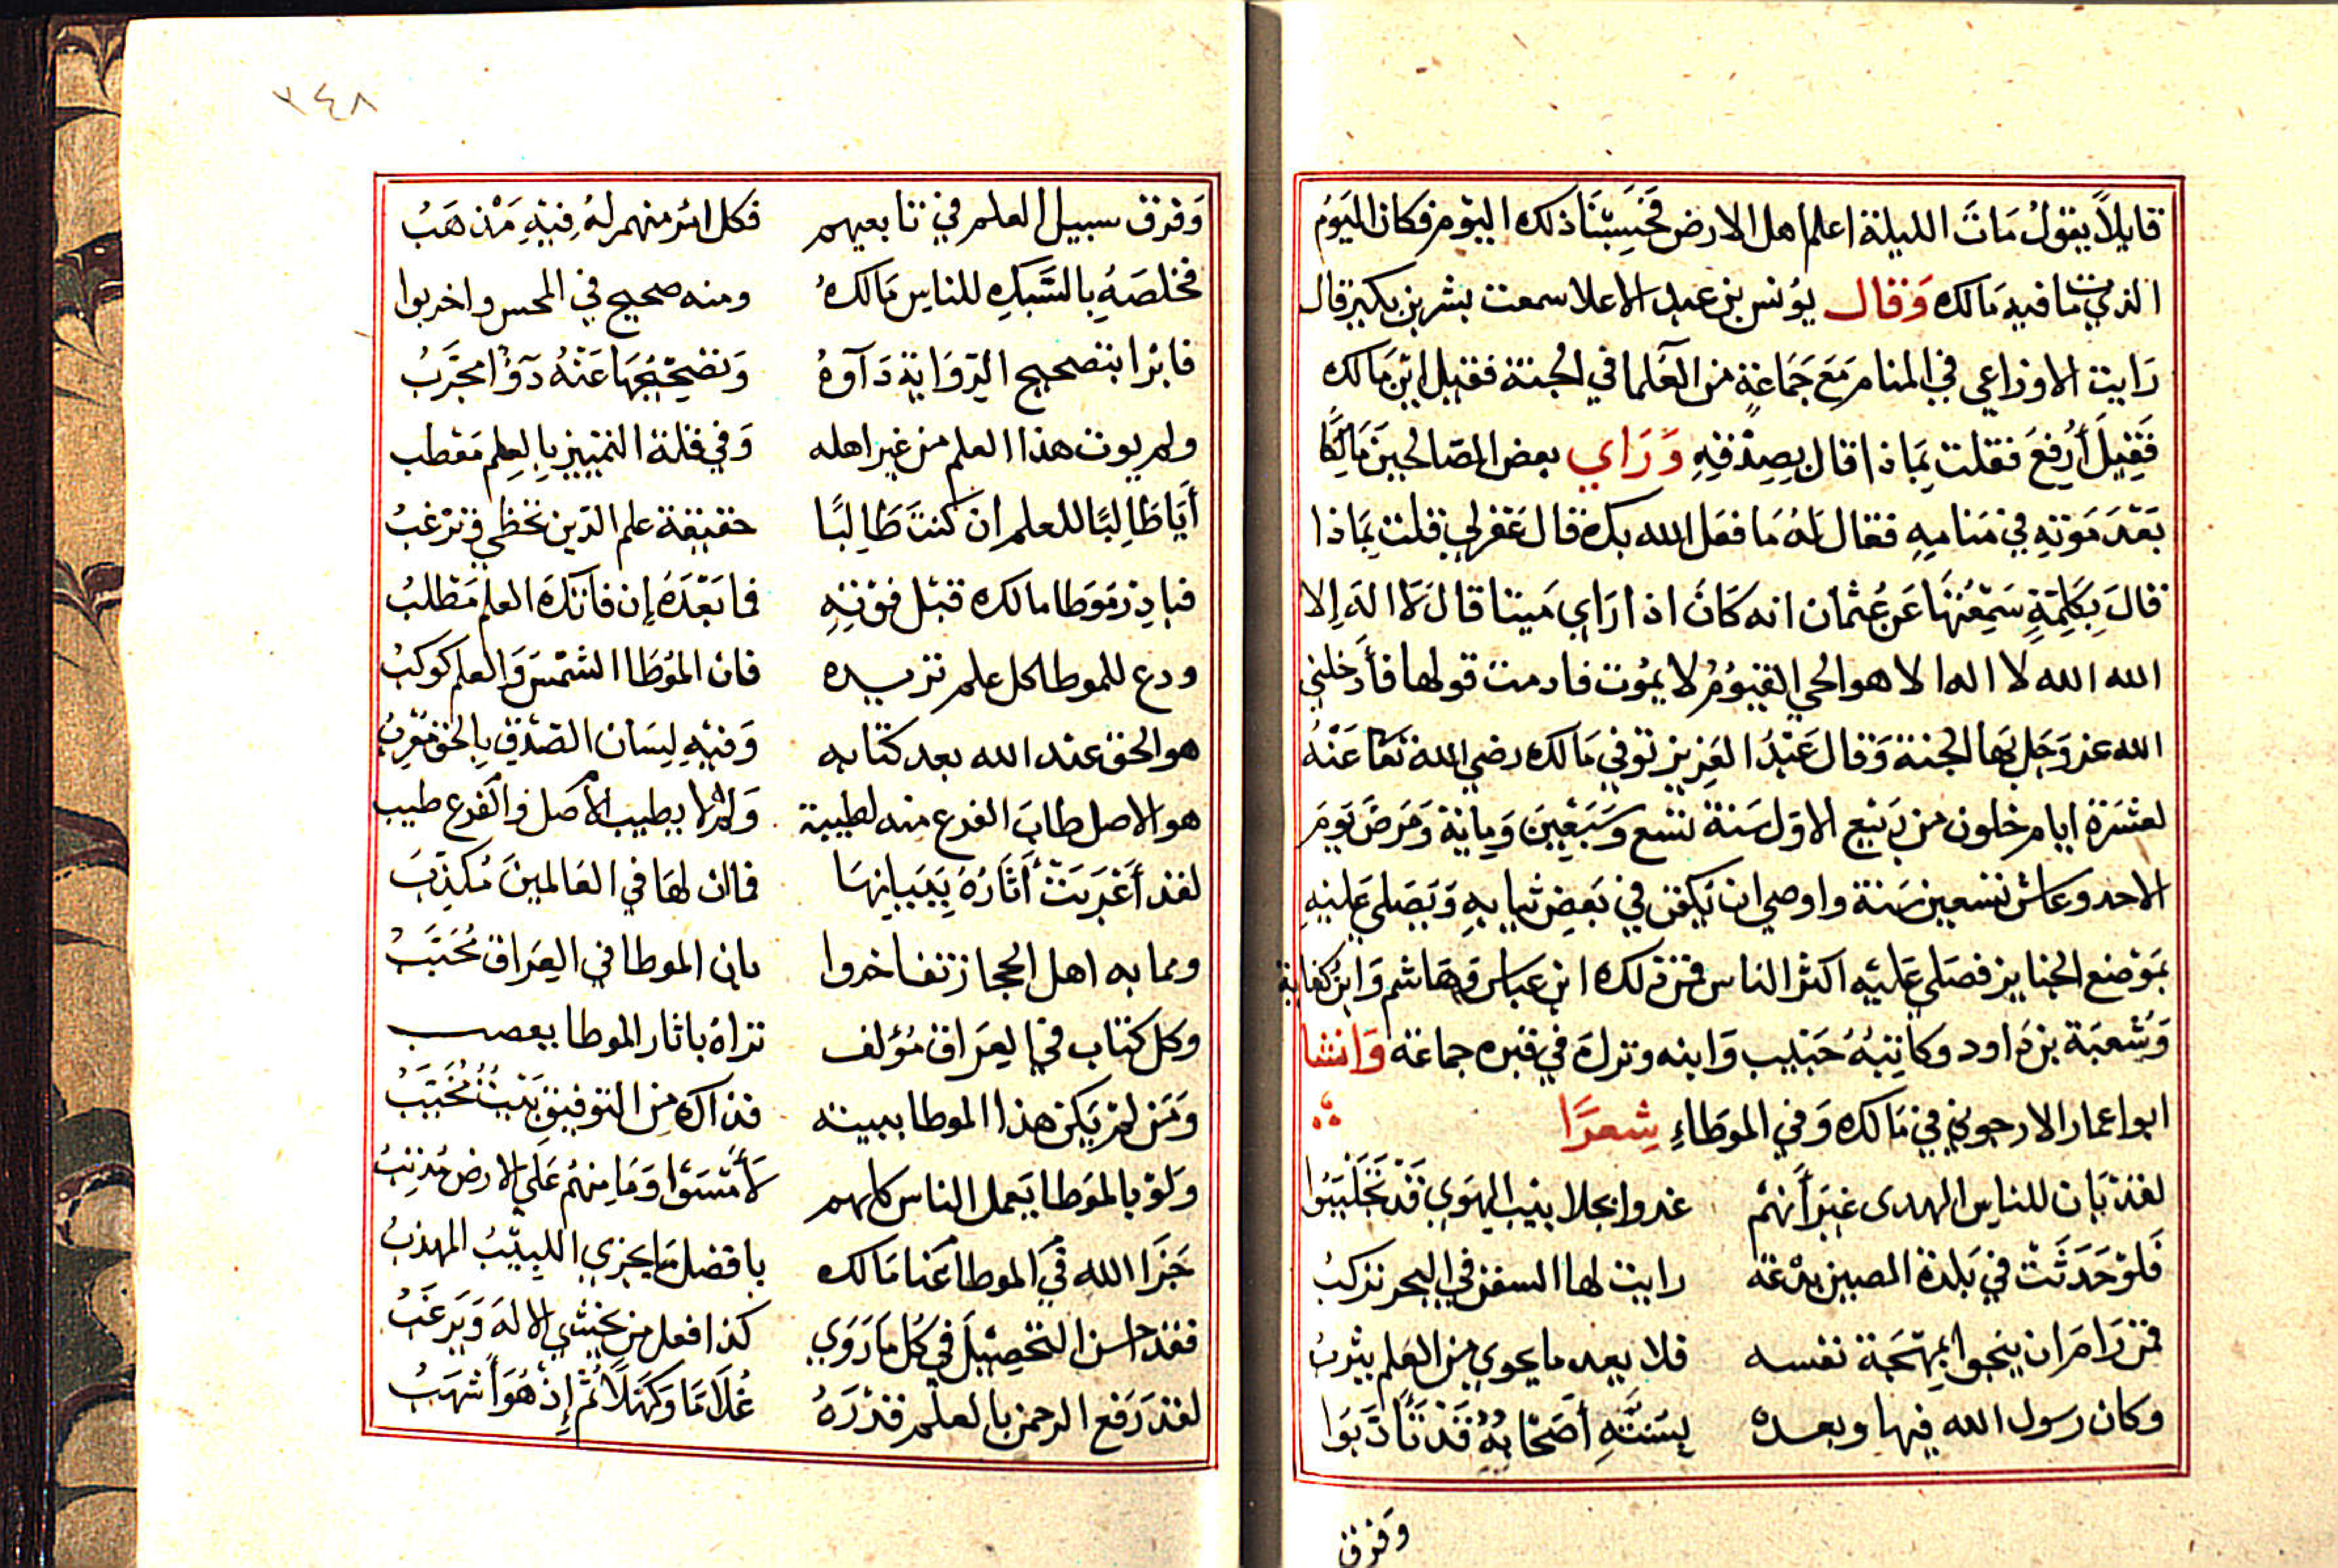 قايلاً يقولُ مَاتَ الليلة اعلم اهل الارض فحَسِبْنَا ذلك اليوم فكان اليَومُ
الذي مات فيه مَالك وَقال يُونس بن عبد الاعلا سمعت بشر بن بكير قال
رَايت الاوزاعي في المنام مَعَ جَمَاعَةٍ من العُلما في الجنة فقيل اين مَالك
فَقِيلَ أُرفعَ فقلت بَمِاذا قال بصِدْقِهِ وَرَاي بعض الصّالحين مَالِكًا
بَعْدَ مَوْتهِ في مَنامِهِ فقال لهُ مَا فعَل الله بك قال غَفرلي قلت بِمَاذا
قالَ بِكَلِمَةٍ سَمِعْتُهَا عَن عُثمان انه كَانَ اذا رَاي مَيتا قال لاَ الهَ إلا
الله الله لا اله الا هو الحي القيوُمُ لا يمُوت فادمت قولها فأَدخلني
الله عز وَجَل بهَا الجنة وَقال عَبْدُ العَزيز توفي مَالك رضي الله تعَا عَنْهُ
لعشرَة ايام خلون من رَبيع الاوّل سَنة تسْع وَسَبْعِينَ وَمِاية وَمَرضَ يَومَ
الاحد وعاش تسعين سَنة واوصي ان يَكفن في بَعْضِ ثيابِهِ وَيَصَلي عَليْهِ
بمَوْضع الجنايز فصَلي عَليْه اكثر الناس فمن ذلك ابن عباس وَهَاشم وَابن كفاية
وَشُعبَة بن دَاود وكاتِبُهُ حَبيب وَابنه ونزلَ في قبره جماعة وَانشا
ابوا عمار الارجوني في مَالك وَفي الموَطاءِ شِعرًا
لقدْ بَان للناسِ الهدى غيْرَ أنهُم غدوا بجلابيْب الهَوي قدْ تجَلْبَبُوا
فَلوْ حَدَثَتْ في بَلدة الصين بدْعَة رايت لها السفن في البحر تركبُ
فمن رَامَ ان ينجوا بمِهجَة نفسه فلا يعد ما يحوي من العلم يثربُ
وكان رسول الله فيها وبعده بسُنتِهِ أصْحَابُهُ قَدْ تَأدّبَوا
وَفرق
٣٤٨
وَفرق سبيل العلم في تابعيهم فكل امرٍ منهم لهُ فِيْهِ مَذهَبُ
فخلصَهُ بالسَّبكِ للناسِ مَالكُ ومنه صحيح في المحس واخربوا
فابرا بتصحيح الرّوَاية دَآوهُ وَتصْحيْحُهَا عَنْهُ دَوَآءٌ مجرّبُ
ولم يوت هذا العلم من غير اهله وَفي قلة التمييز بالعِلم مَعْطب
أيَا طَالِبًا للعلم ان كنتَ طَالِبًا حقيقة علم الدّين تحظي وترْغبُ
فبادِر مُوَطا مالك قبْل فوْتِهِ فما بَعْدَهُ إن فاتكَ العلم مَطلبُ
ودع للموطا كل علم تريده فان الموُطا الشمْسَ وَالعلم كوكبُ
هو الحق عند الله بعد كتابه وَفيْهِ لِسَان الصّدْق بالحق مُعْربُ
هو الاصل طابَ الفرع منه لطيبة وَلم لا يطيب الاصَل والفرع طيب
لقد أَعْرَبَتْ أَثَارُهُ بِبَيَانِهَا فما ان لها في العَالمينَ مُكذِّبَ
ومما به اهل الحجاز تفاخروا بان الموطا في العِرَاق مُحَبَّبُ
وكل كتاب في العِرَاق مُؤلف نراهُ باثار الموطا يعصب
وَمَن لم يَكن هذا الموطا ببيته فذاك مِن التوفيق بَيْتٌ مُخَيَّبُ
وَلوْ بالموَطا يَعمل الناس كلهم لأمْسَوْا وَمَا مِنهُم عَلي الارض مُذنِبُ
جَزَا اللهِ في الموطا عَنا مَالك بافضل مَا يجزي اللبِيْبُ المهذبُ
فقد احسن التحصِيْلَ في كُل مَا رَوَي كذا فعل من يخشي الالهَ وَيَرغَبُ
لقد رَفع الرحمن بالعلم قدْرَهُ غُلاَمًا وَكَهْلاً ثُم إذْ هُوَ أَشهَبُ